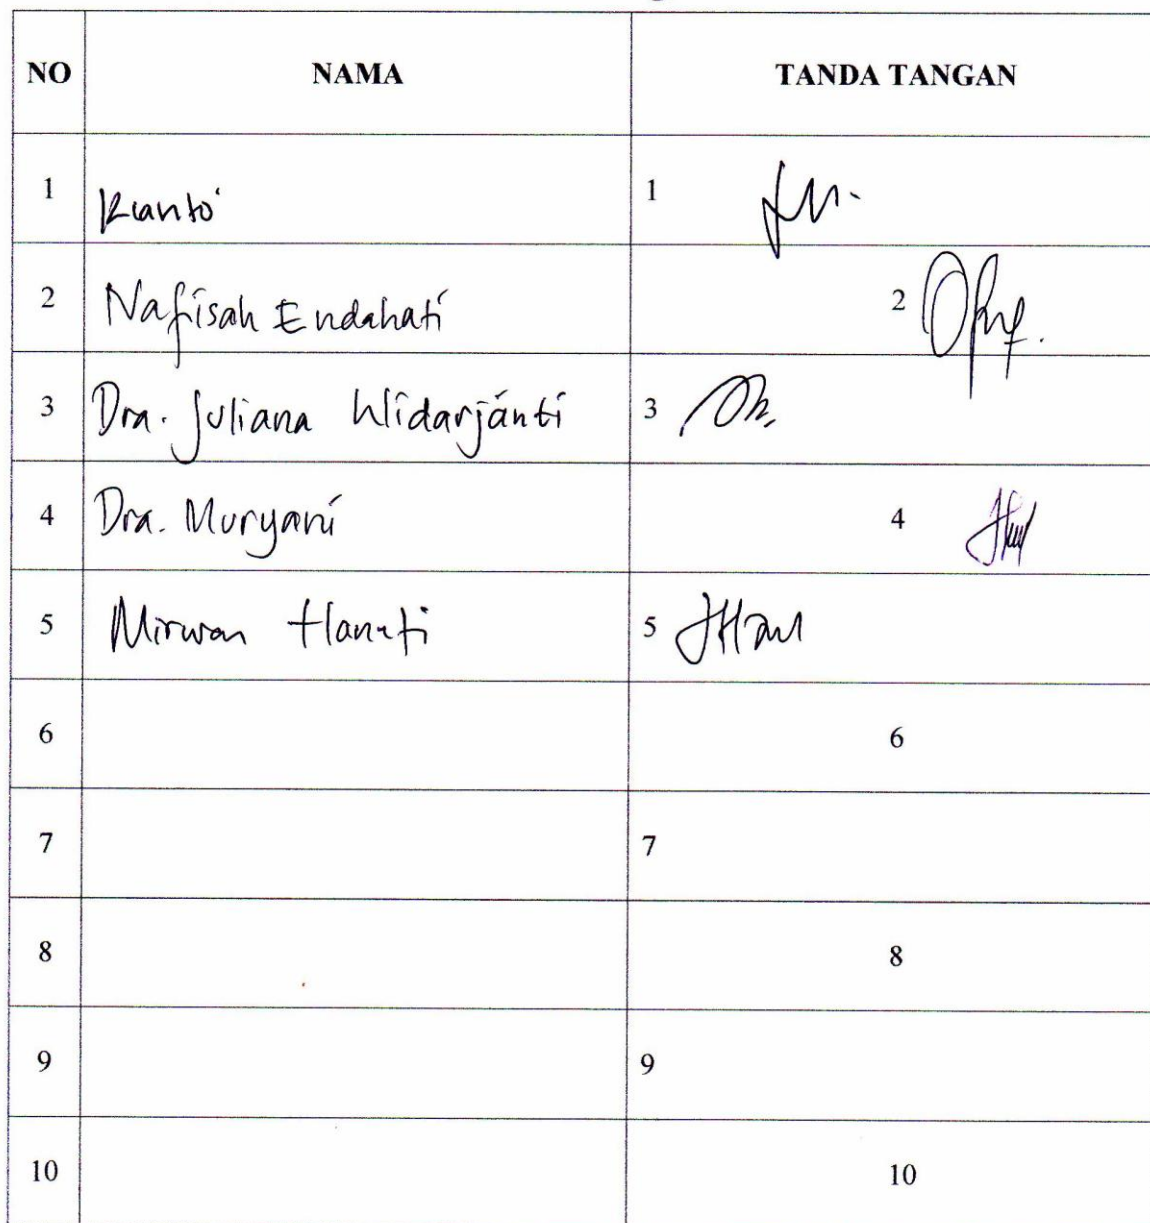 NO NAMA TANDA TANGAN
1 Rianto 1
2 Nafisah Endahati 2
3 Dra. Juliana Widarjanti 3
4 Dra. Muryani 4
5 Mirwan Hanafi 5
6 6
7 7
8 8
9 9
10 10